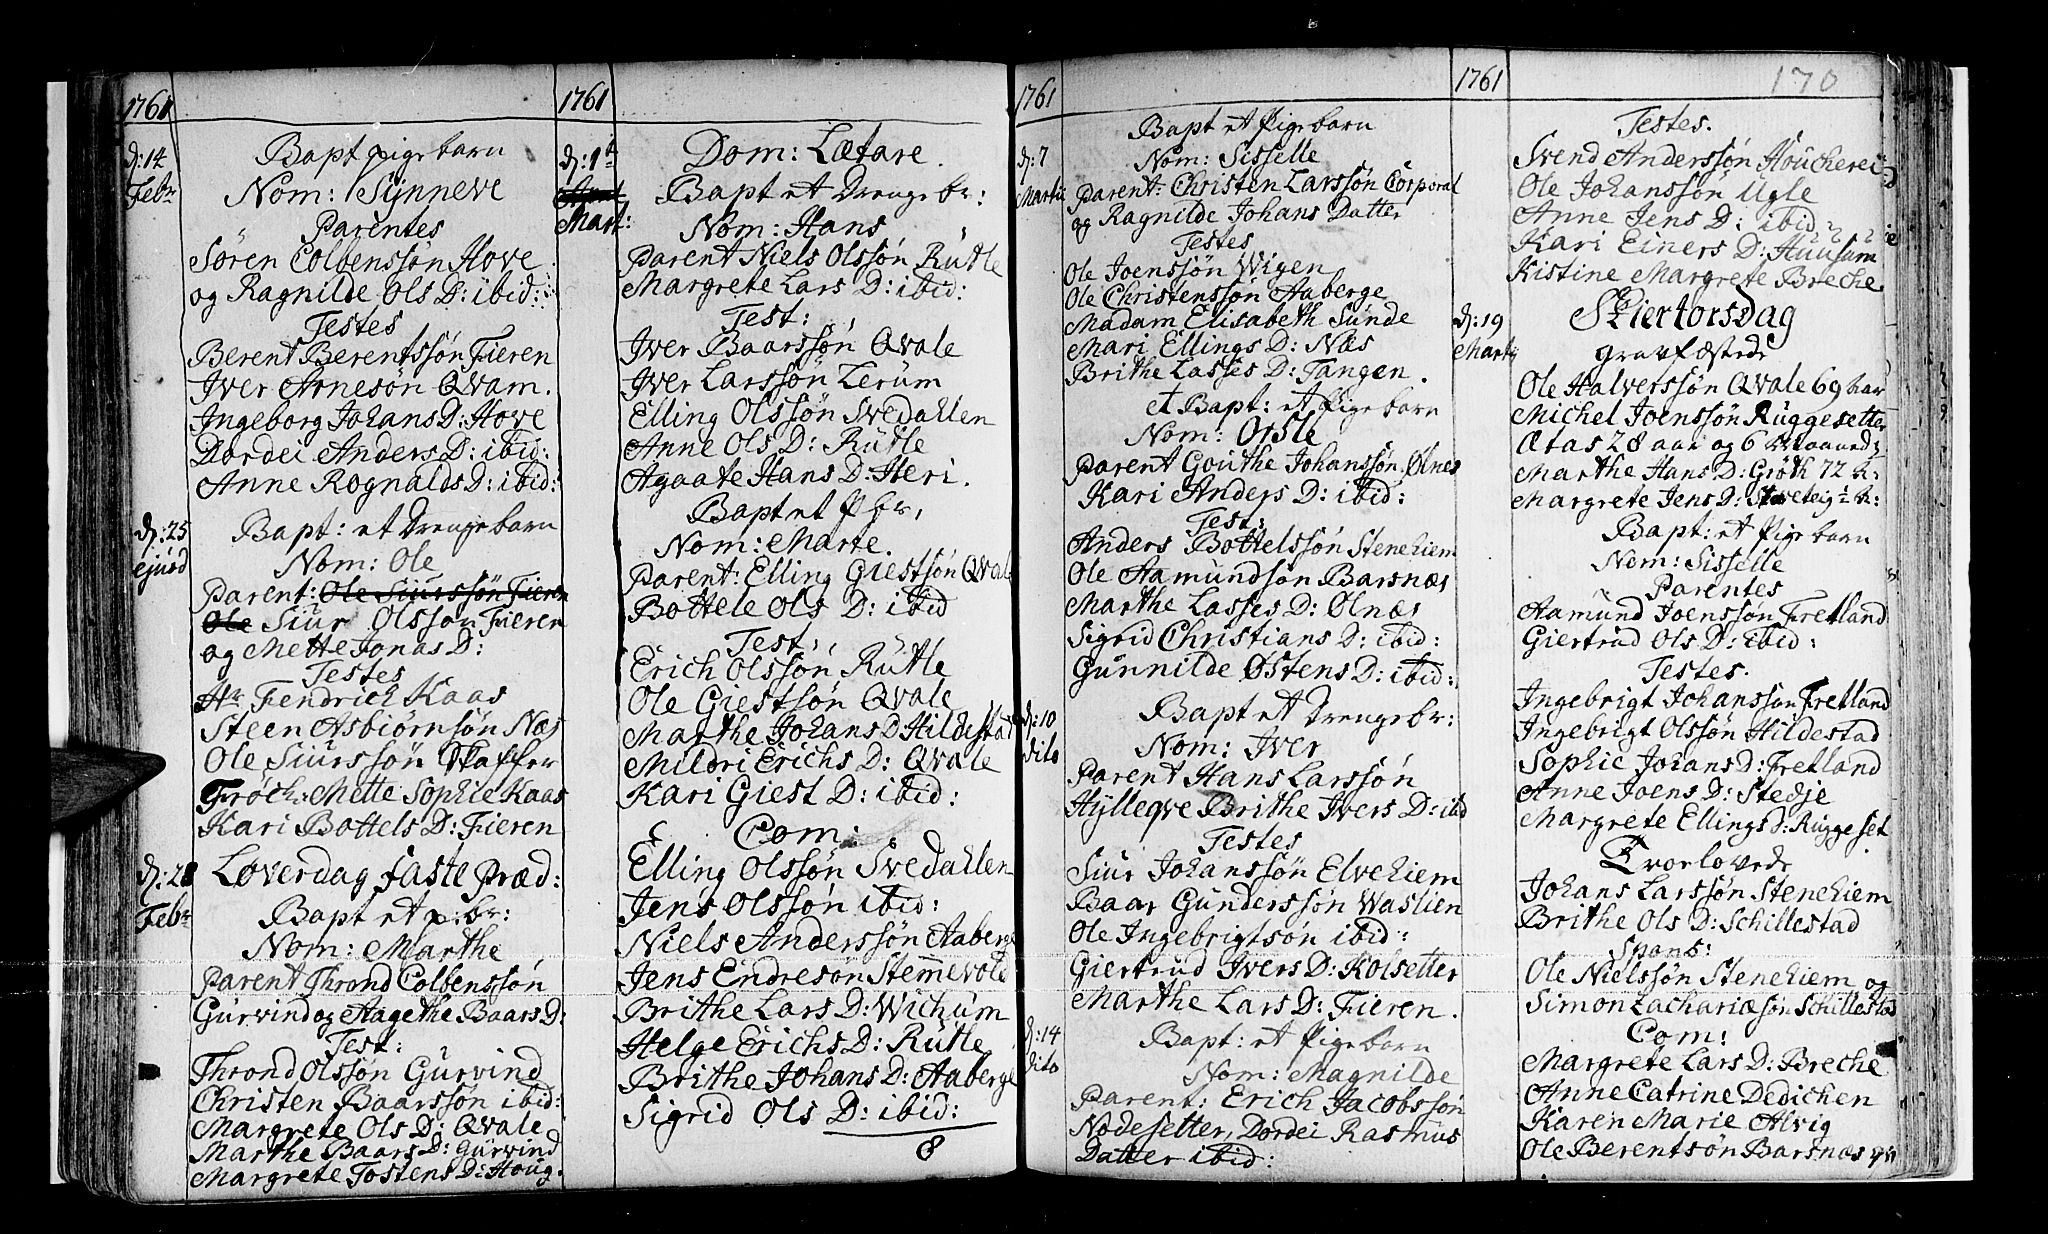 1761
d: 14
Febr
Bapt pigebarn
Nom: Synneve
Parentes
Søren Colbenssøn Hove
og Ragnilde Ols D: ibid:
Testes
Berent Berentssøn Fieren
Iver Arnesøn Qvam.
Ingeborg Johans D: Hove
Dordei Anders D: ibid:
Anne Rognalds D: ibid:
d: 25
ejusd
Bapt: et Drengebarn
Nom: Ole
Parent: Ole Siurssøn Fieren
Ole Siur Olsson Fieren
og Mette Jonas D:
Testes
Hr Fendrich Kaas
Steen Asbiørnsøn Næs
Ole Siurssøn Skaffer
Frøch: Mette Sophie Kaas
Kari Bottels D: Fieren
d: 28
Febr
Løverdag faste Præd:
Bapt et p: br:
Nom: Marthe
Parent Thrond Colbenssøn
Gurvind og Aagethe Baars D:
Test:
Thrond Olssøn Gurvind
Christen Baarssøn ibid:
Margrete Ols D: Qvale
Marthe Baars D: Gurvind
Margrete Tostens D: Houg.
1761
d: 1
Mart:
Dom: Lætare.
Bapt et Drengebr:
Nom: Hans
Parent Niels Olssøn Rutle
Margrete Lars D: ibid:
Test:
Iver Baarssøn Qvale
Iver Larssøn Lerum
Elling Olssøn Svedahlen
Anne Ols D: Rutle
Agaate Hans D: Heri.
Bapt et P br,
Nom: Marte.
Parent: Elling Giestsøn Qvale
Bottele Ols D: ibid
Test,
Erich Olssøn Rutle
Ole Giestsøn Qvale
Marthe Johans D Hildestad
Mildri Erichs D: Qvale
Kari Giest D: ibid:
Com:
Elling Olssøn Svedahlen
Jens Olssøn ibid:
Niels Anderssøn Aaberge
Jens Endresøn Stemmevold
Brithe Lars D: Wichum
Helge Erichs D: Rutle
Brithe Johans D: Aaberge
Sigrid Ols D: ibid:
8
1761
d: 7
Martii
Bapt et Pigebarn
Nom: Sisselle
Parent: Christen Larssøn Corporal
og Ragnilde Johans Datter
Testes
Ole Joenssøn Wigen
Ole Christenssøn Aaberge
Madam Elisabeth Sunde
Mari Ellings D: Næs
Brithe Lasses D: Tangen.
et Bapt: et Pigebarn
Nom: Orsle
Parent Gouthe Johanssøn Ølnes
Kari Anders D: ibid:
Test:
Anders Bottelssøn Stenehiem
Ole Aamundsøn Barsnæs
Marthe Lasses D: Ølnæs
Sigrid Christians D: ibid:
Gunnilde Østens D: ibid:
d: 10
dito
Bapt et Drengebr:
Nom: Iver
Parent Hans Larssøn
Hylleqve Brithe Ivers D: ibid
Testes
Siur Johanssøn Elvehiem
Baar Gunderssøn Waslien
Ole Ingebrigtsøn ibid:
Giertrud Ivers D: Kolsetter
Marthe Lars D: Fieren.
d: 14
dito
Bapt: et Pigebarn
Nom: Magnilde
Parent: Erich Jacobssøn
Nodesetter, Dordei Rasmus
Datter ibid:
1761
170
Testes.
Svend Anderssøn Houcherei
Ole Johanssøn Ugle
Anne Jens D: ibid:
Kari Einers D: Huusum
Kistine Margrete Breche
d: 19
Martii
Skiertorsdag
gravfæstede
Ole Halverssøn Qvale 69 aar
Michel Joenssøn Ruggesetter
Ætas 28 aar og 6 Maaned:
Marthe Hans D: Groth 72 A:
Margrete Jens D: ½ A:
Bapt: et Pigebarn
Nom: Sisselle
Parentes
Aamund Joenssøn Fretland
Giertrud Ols D: ibid:
Testes.
Ingebrigt Johanssøn Fretland
Ingebrigt Olssøn Hildestad
Sophie Johans D: Fretland
Anne Joens D: Stedje
Margrete Ellings d: Ruggeset.
Trorlovede
Johans Larssøn Stenehiem
Brithe Ols D: Schillestad
Spons:
Ole Nielssøn Stenehiem og
Simon Zachariæsøn Schillestad
Com:
Margrete Lars D: Breche
Anne Catrine Dedichen
Karen Marie Alvig
Ole Berentsøn Barsnæs